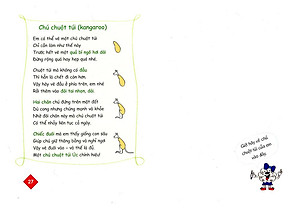 Chú chuột túi (kangaroo)
Em có thể vẽ một chú chuột túi
Chỉ cần làm như thế này
Trước hết vẽ một quả bí ngô hơi dài
Đừng rộng quá hay hẹp quá nhé.
Chuột túi mà không có đầu
Thì hẳn là chết đi còn hơn.
Vậy hãy vẽ đầu ở phía trên, em nhé
Rồi thêm vào đôi tai nhọn, dài.
Hai chân chú đứng trên mặt đất
Dù cong nhưng chúng mạnh và khỏe
Nhờ đôi chân này mà chú chuột túi
Có thể nhảy liên tục cả ngày.
Chiếc đuôi mà em thấy giống con sâu
Giúp chú giữ thăng bằng và nghỉ ngơi
Vậy vẽ đuôi vào - và thế là đủ
Một chú chuột túi Úc chính hiệu!
27
Giờ hãy vẽ chú
chuột túi của em
vào đây.